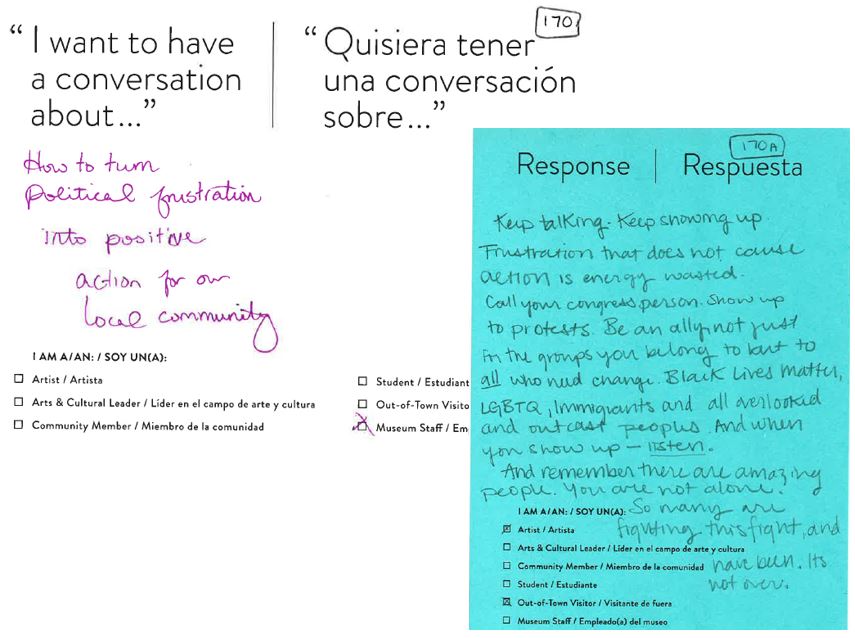 170
“ I want to have
a conversation
about...”
“ Quisiera tener
una conversación
sobre...”
How to turn
political frustration
into positive
action for our
local community
I AM A/AN: / SOY UN(A):
Artist / Artista
Arts & Cultural Leader / Líder en el campo de arte y cultura
Community Member / Miembro de la comunidad
Student / Estudiant
Out-of-Town Visito
Museum Staff / Em
170A
Response | Respuesta
Keep talking. Keep showing up.
Frustration that does not cause
action is energy wasted.
Call your congress person. Show up
to protests. Be an ally, not just
in the groups you belong to but to
all who need change. Black Lives Matter,
LGBTQ, Immigrants and all overlooked
and outcast peoples. And when
you show up – listen.
And remember there are amazing
people. You are not alone.
So many are
fighting this fight, and
have been. Its
not over.
I AM A/AN: / SOY UN(A):
Artist / Artista
Arts & Cultural Leader / Líder en el campo de arte y cultura
Community Member / Miembro de la comunidad
Student / Estudiante
Out-of-Town Visitor / Visitante de fuera
Museum Staff / Empleado(a) del museo